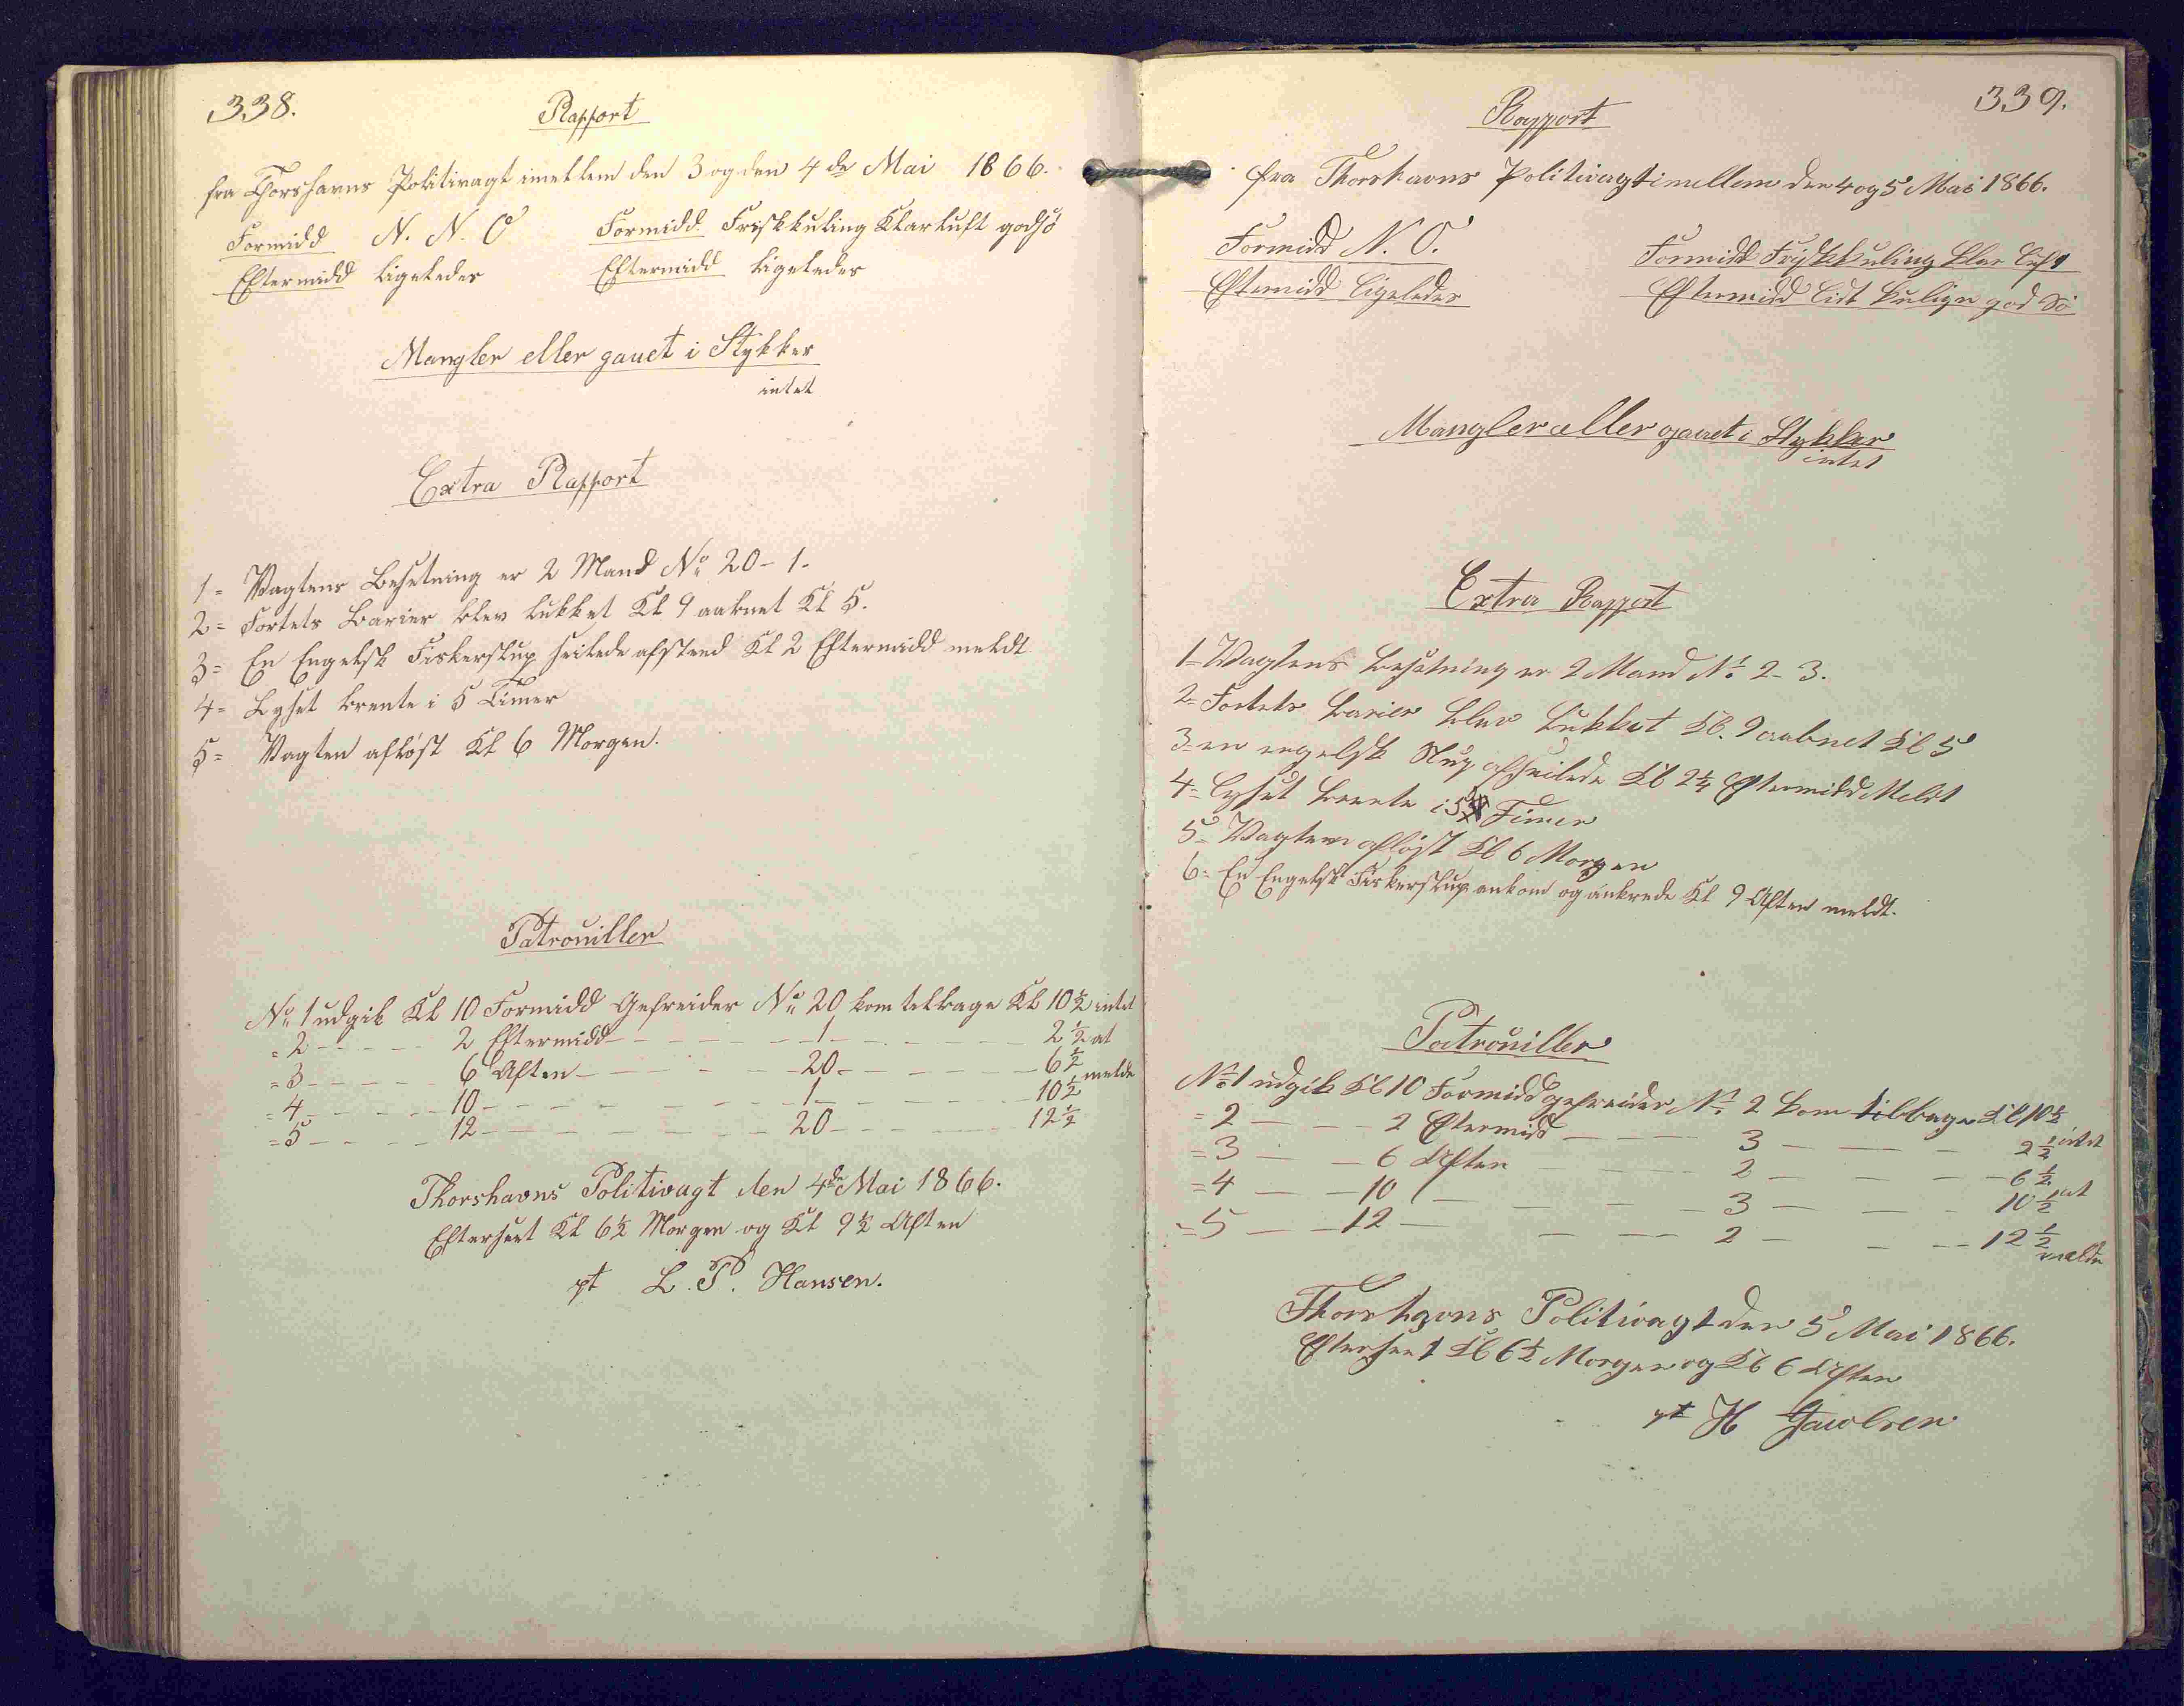 338.
Rapport
fra Thorshavns Politivagt imellem den 3 og den 4de Mai 1866.
Formidd N. N. O Formidd Friskkuling Klarluft godsö
Eftermidd ligeledes Eftermidd ligeledes
Mangler eller gauet i Stykker
intet
Extra Rapport
1= Vagtens Besetning er 2 Mand No 20-1.
2= Fortets Barier blev lukket Kl 9 aabnet Kl 5.
3= En Engelsk Fiskerslup seilede afsted Kl 2 Eftermidd meldt
4= Lyset brente i 5 Timer
5= Vagten aflöst Kl 6 Morgen.
Patrouiller
No 1 udgik Kl 10 Formidd Gefreider No 20 kom telbage Kl 10½ intet
=2 - - - - 2 Eftermidd - - - - 1 - - - - 2½ at
=3 - - - - 6 Aften - - - - 20 - - - - 6½ melde
=4 - - - - 10 - - - - 1 - - - - 10½
=5 - - - - 12 - - - - 20 - - - - 12½
Thorshavns Politivagt den 4de Mai 1866.
Efterseet Kl 6½ Morgen og Kl 9½ Aften
pt L. P. Hansen.
339.
Rapport
fra Thorshavns Politivagt imellem den 4 og 5 Mai 1866.
Formidd N. O. Formidd Friskkuling klar luft
Eftermidd ligeledes Eftermidd lidt kulign god Sö
Mangler eller gauet i Stykker
intet
Extra Rapport
1= Vagtens besetning er 2 Mand No 2-3.
2= Fortets barier blev lukket Kl. 9 aabnet Kl 5
3= en engelsk Slup afseilede Kl 2¼ Eftermidd Meldt
4= lyset brente i 5 Timer
5= Vagten aflöst Kl 6 Morgen
6= En Engelsk Fiskerslup ankom og ankrede Kl 9 Aften meldt.
Patrouiller
No 1 udgik Kl 10 Formidd gefreider No 2 kom tilbage Kl 10½
=2 — — — 2 Eftermidd — — — 3 — — — 2½ intet
=3 — — 6 Aften — — — 2 — — — 6½
=4 — — 10 — — — 3 — — — 10½ at
=5 — — 12 — — — 2 — — — 12½ melde
Thorshavns Politivagt den 5 Mai 1866.
Efterseet Kl 6½ Morgen og Kl 6 Aften
pt H Jacobsen